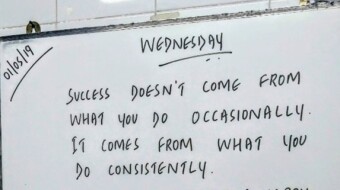 01/05/19
WEDNESDAY
SUCCESS DOESN'T COME FROM
WHAT YOU DO OCCASIONALLY.
IT COMES FROM WHAT YOU
DO CONSISTENTLY.